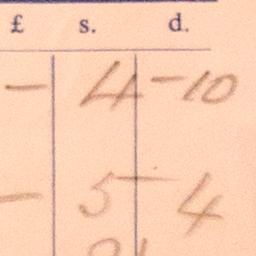 £ s. d.
- 4 - 10
- 5 - 4